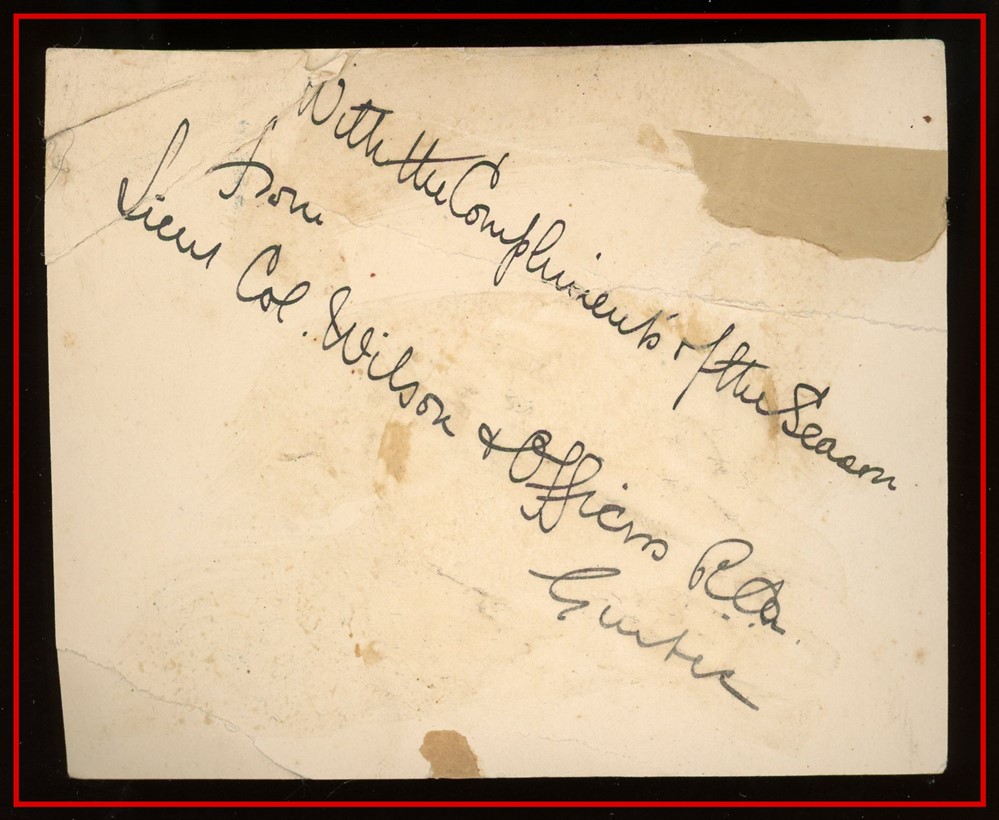 With the Compliments of the Season
from
Lieut Col. Wilson & Officers R.G.A.